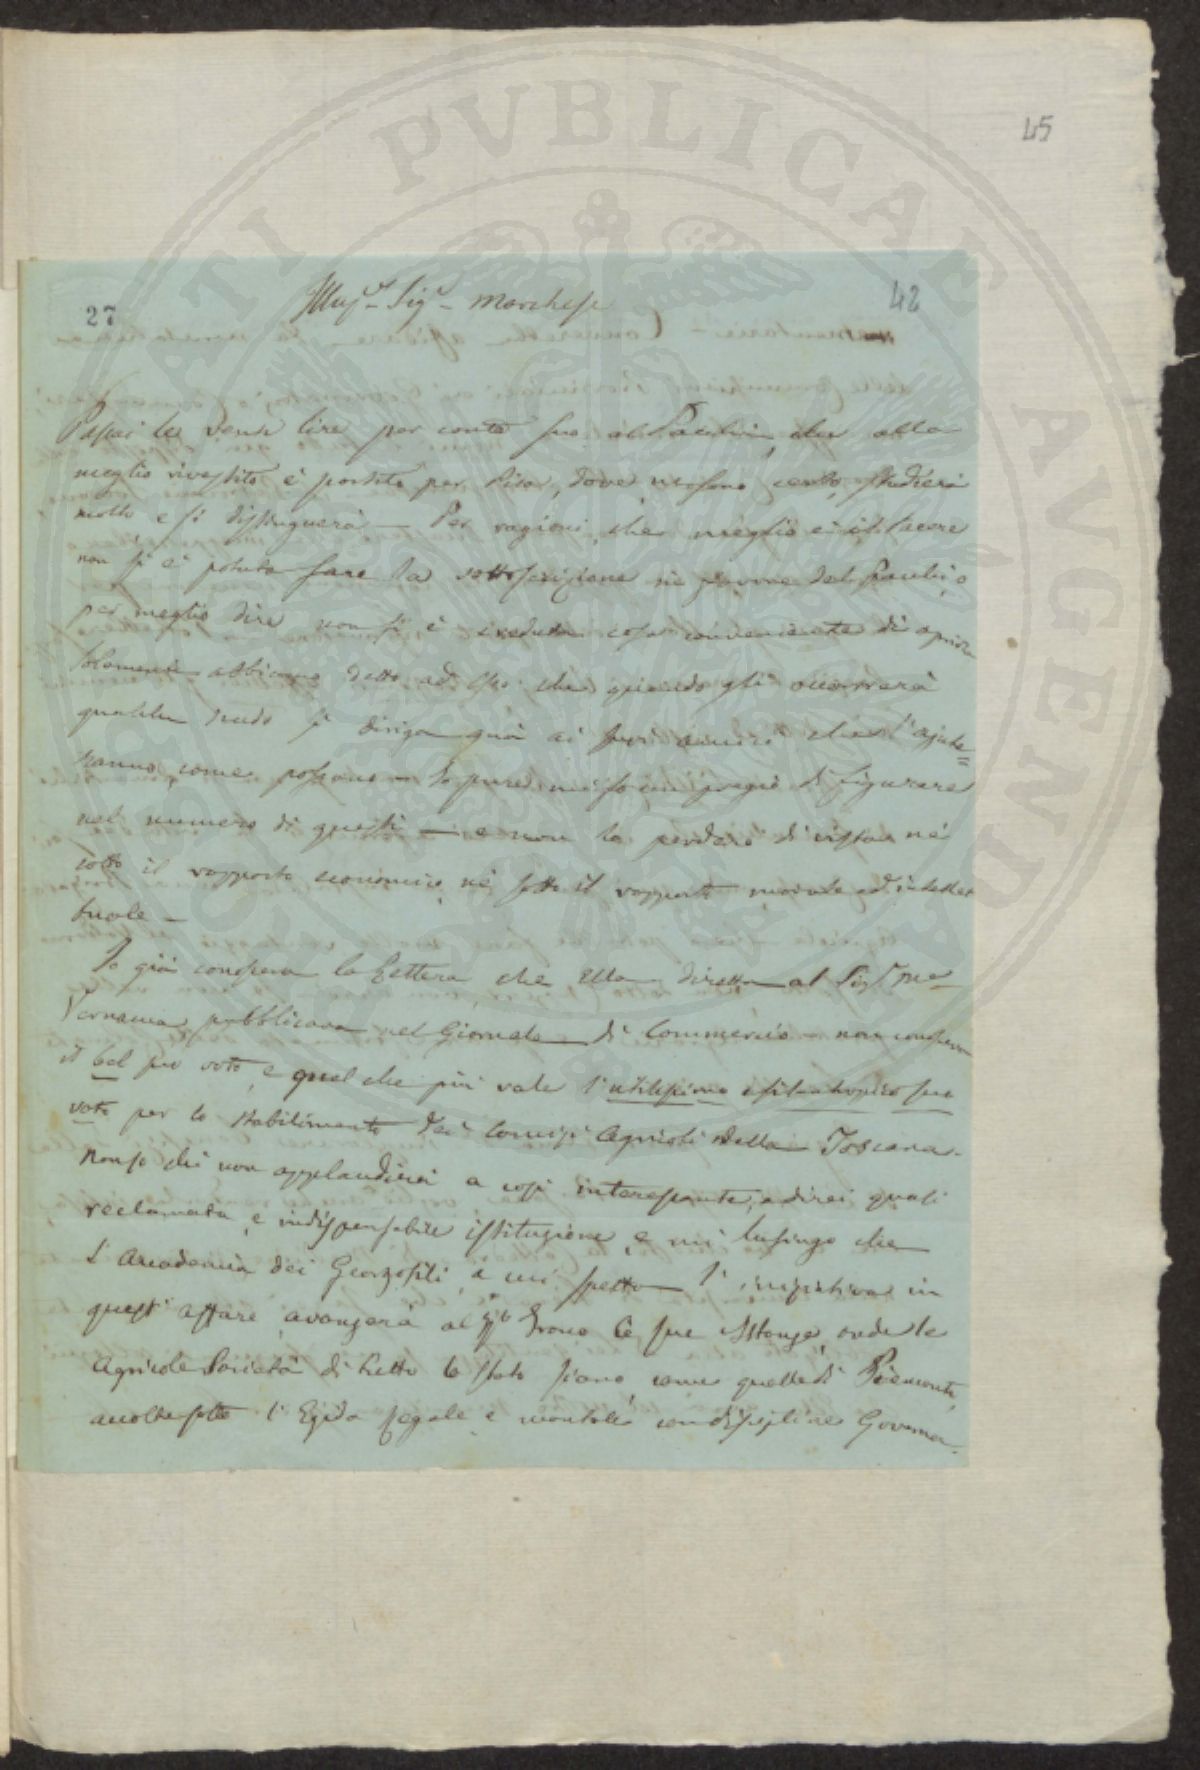 45
27
42
Illus.mo Sig.r Marchese
Passai le venti lire per conto suo al Pacchini, che alla
meglio rivestito è partito per Pisa, dove, ne sono certo, studierà
molto e si distinguerà — Per ragioni, che meglio è il tacere
non si è potuta fare la sottoscrizione in favore del Pacchini, o
per meglio dire non si è creduta cosa conveniente di aprirla
Solamente abbiamo detto ad esso che quando gli occorrerà
qualche scudo si diriga quà ai suoi amici che l'ajute=
ranno come possono — Io pure mi fo un pregio di figurare
nel numero di questi — e non lo perderò di vista nè
sotto il rapporto economico, nè sotto il rapporto morale ed intellet
tuale —
Io già conosceva la Lettera che Ella diretta al Sig.r
pubblicava nel Giornale di Commercio — non conosceva
il bel suo voto, e quel che più vale l'utilissimo e filantropico suo
voto per lo stabilimento dei Comizi Agricoli della Toscana.
Non so chi non applaudirei a così interessante, e direi quasi
reclamata, e indispensabile istituzione, e mi lusingo che
l'Accademia dei Georgofili, a cui spetta l'iniziativa in
quest'affare, avanzerà al Trono le sue istanze, onde le
Agricole Società di tutto lo Stato siano, come quelle di Piemonte,
accolte sotto l'Egida legale e montate con discipline Governa